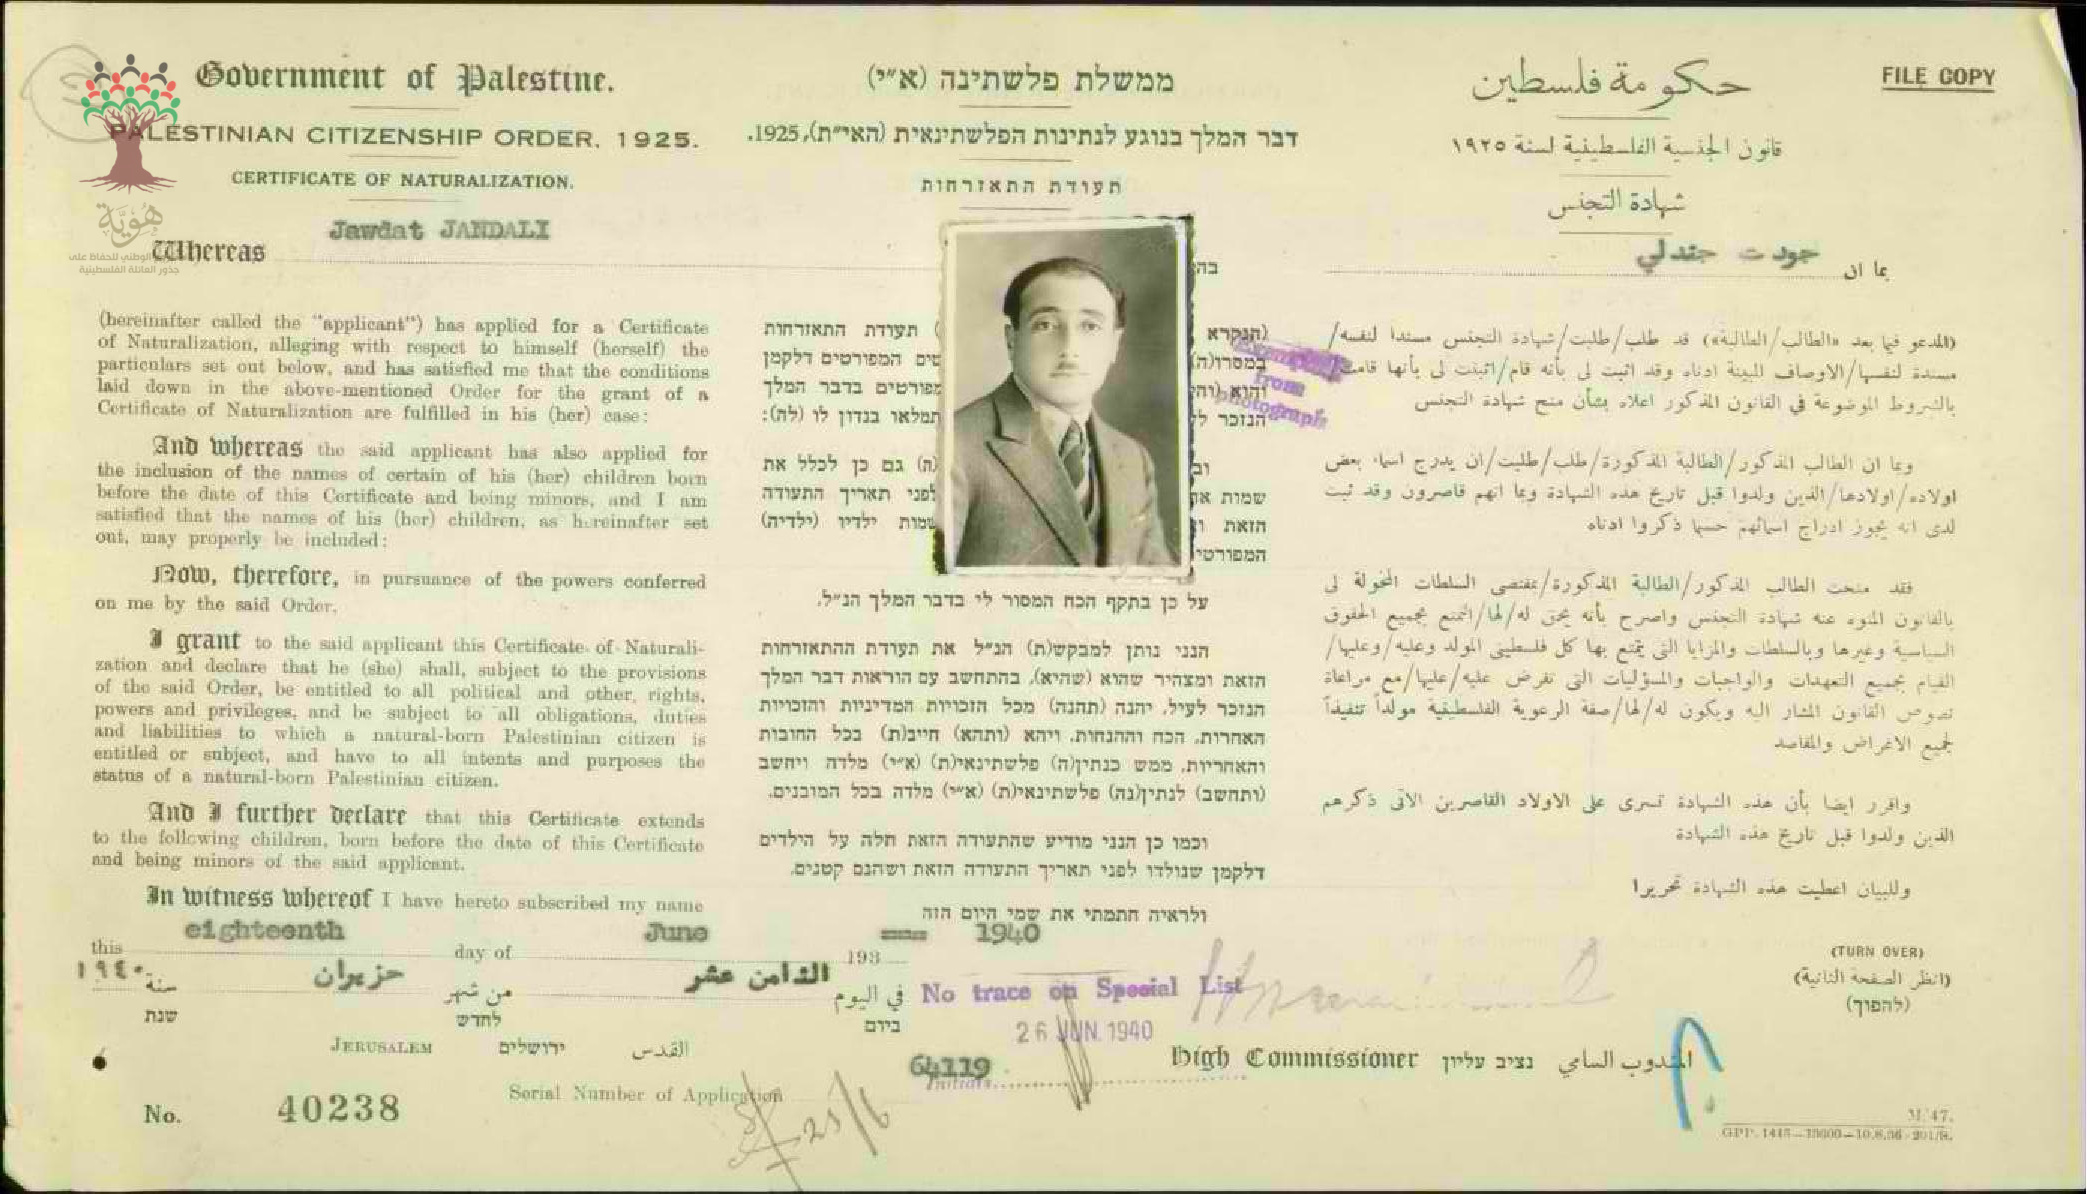 Government of Palestine.
PALESTINIAN CITIZENSHIP ORDER, 1925.
CERTIFICATE OF NATURALIZATION.
Jawdat JANDALI
Whereas
(hereinafter called the "applicant") has applied for a Certificate
of Naturalization, alleging with respect to himself (herself) the
particulars set out below, and has satisfied me that the conditions
laid down in the above-mentioned Order for the grant of a
Certificate of Naturalization are fulfilled in his (her) case:
And whereas the said applicant has also applied for
the inclusion of the names of certain of his (her) children born
before the date of this Certificate and being minors, and I am
satisfied that the names of his (her) children, as hereinafter set
out, may properly be included:
Now, therefore, in pursuance of the powers conferred
on me by the said Order.
I grant to the said applicant this Certificate of Naturali-
zation and declare that he (she) shall, subject to the provisions
of the said Order, be entitled to all political and other, rights,
powers and privileges, and be subject to all obligations, duties
and liabilities to which a natural-born Palestinian citizen is
entitled or subject, and have to all intents and purposes the
status of a natural-born Palestinian citizen.
And I further declare that this Certificate extends
to the following children, born before the date of this Certificate
and being minors of the said applicant.
In witness whereof I have hereto subscribed my name
this eighteenth day of June 193 1940
ממשלת פלשתינה (א״י)
דבר המלך בנוגע לנתינות הפלשתינאית (הא״ית), 1925.
תעודת התאזרחות
(הנקרא ) תעודת התאזרחות
במסרו(ה) המפורטים דלקמן
מפורטים בדבר המלך
הנזכר תמלאו בנדון לו (לה):
(ה) גם כן לכלל את
שמות לפני תאריך התעודה
הזאת שמות ילדיו (ילדיה)
המפורטי
על כן בתקף הכח המסור לי בדבר המלך הנ״ל.
הנני נותן למבקש(ת) הנ״ל את תעודת ההתאזרחות
הזאת ומצהיר שהוא (שהיא), בהתחשב עם הוראות דבר המלך
הנזכר לעיל, יהנה (תהנה) מכל הזכויות המדיניות והזכויות
האחרות, הכח וההנחות, ויהא (ותהא) חייב(ת) בכל החובות
והאחריות, ממש כנתין(ה) פלשתינאי(ת) (א״י) מלדה ויחשב
(ותחשב) לנתין(נה) פלשתינאי(ת) (א״י) מלדה בכל המובנים.
וכמו כן הנני מודיע שהתעודה הזאת חלה על הילדים
דלקמן שנולדו לפני תאריך התעודה הזאת ושהנם קטנים.
ולראיה חתמתי את שמי היום הזה
FILE COPY
حكومة فلسطين
قانون الجنسية الفلسطينية لسنة ١٩٢٥
شهادة التجنس
جودت جندلي
بما ان
(المدعو فيما بعد «الطالب/الطالبة») قد طلب/طلبت/شهادة التجنس مسندا لنفسه/
مسندة لنفسها/الاوصاف المبينة ادناه وقد اثبت لى بأنه قام/اثبتت لى بأنها قامت/
بالشروط الموضوعة في القانون المذكور اعلاه بشأن منح شهادة التجنس
وبما ان الطالب المذكور/الطالبة المذكورة/طلب/طلبت/ان يدرج اسماء بعض
اولاده/اولادها/الذين ولدوا قبل تاريخ هذه الشهادة وبما انهم قاصرون وقد ثبت
لدى انه يجوز ادراج اسمائهم حسبما ذكروا ادناه
فقد منحت الطالب المذكور/الطالبة المذكورة/بمقتضى السلطات المخولة لى
بالقانون المنوه عنه شهادة التجنس واصرح بأنه يحق له/لها/التمتع بجميع الحقوق
السياسية وغيرها وبالسلطات والمزايا التى يتمتع بها كل فلسطينى المولد وعليه/وعليها/
القيام بجميع التعهدات والواجبات والمسؤليات التى تفرض عليه/عليها/مع مراعاة
نصوص القانون المشار اليه ويكون له/لها/صفة الرعوية الفلسطينية مولداً تنفيذاً
لجميع الاغراض والمقاصد
واقرر ايضا بأن هذه الشهادة تسرى على الاولاد القاصرين الاتى ذكرهم
الذين ولدوا قبل تاريخ هذه الشهادة
وللبيان اعطيت هذه الشهادة تحريرا
from
photograph
(TURN OVER)
(انظر الصفحة الثانية)
(להפוך)
في اليوم الثامن عشر من شهر حزيران سنة ١٩٤٠
ביום לחדש שנת
JERUSALEM ירושלים القدس
No trace on Special List
26 JUN. 1940
Initials
High Commissioner נציב עליון المندوب السامي
Serial Number of Application 64119
No. 40238
25/6
M. 47.
هُوِيَّة
الوطني للحفاظ على
جذور العائلة الفلسطينية